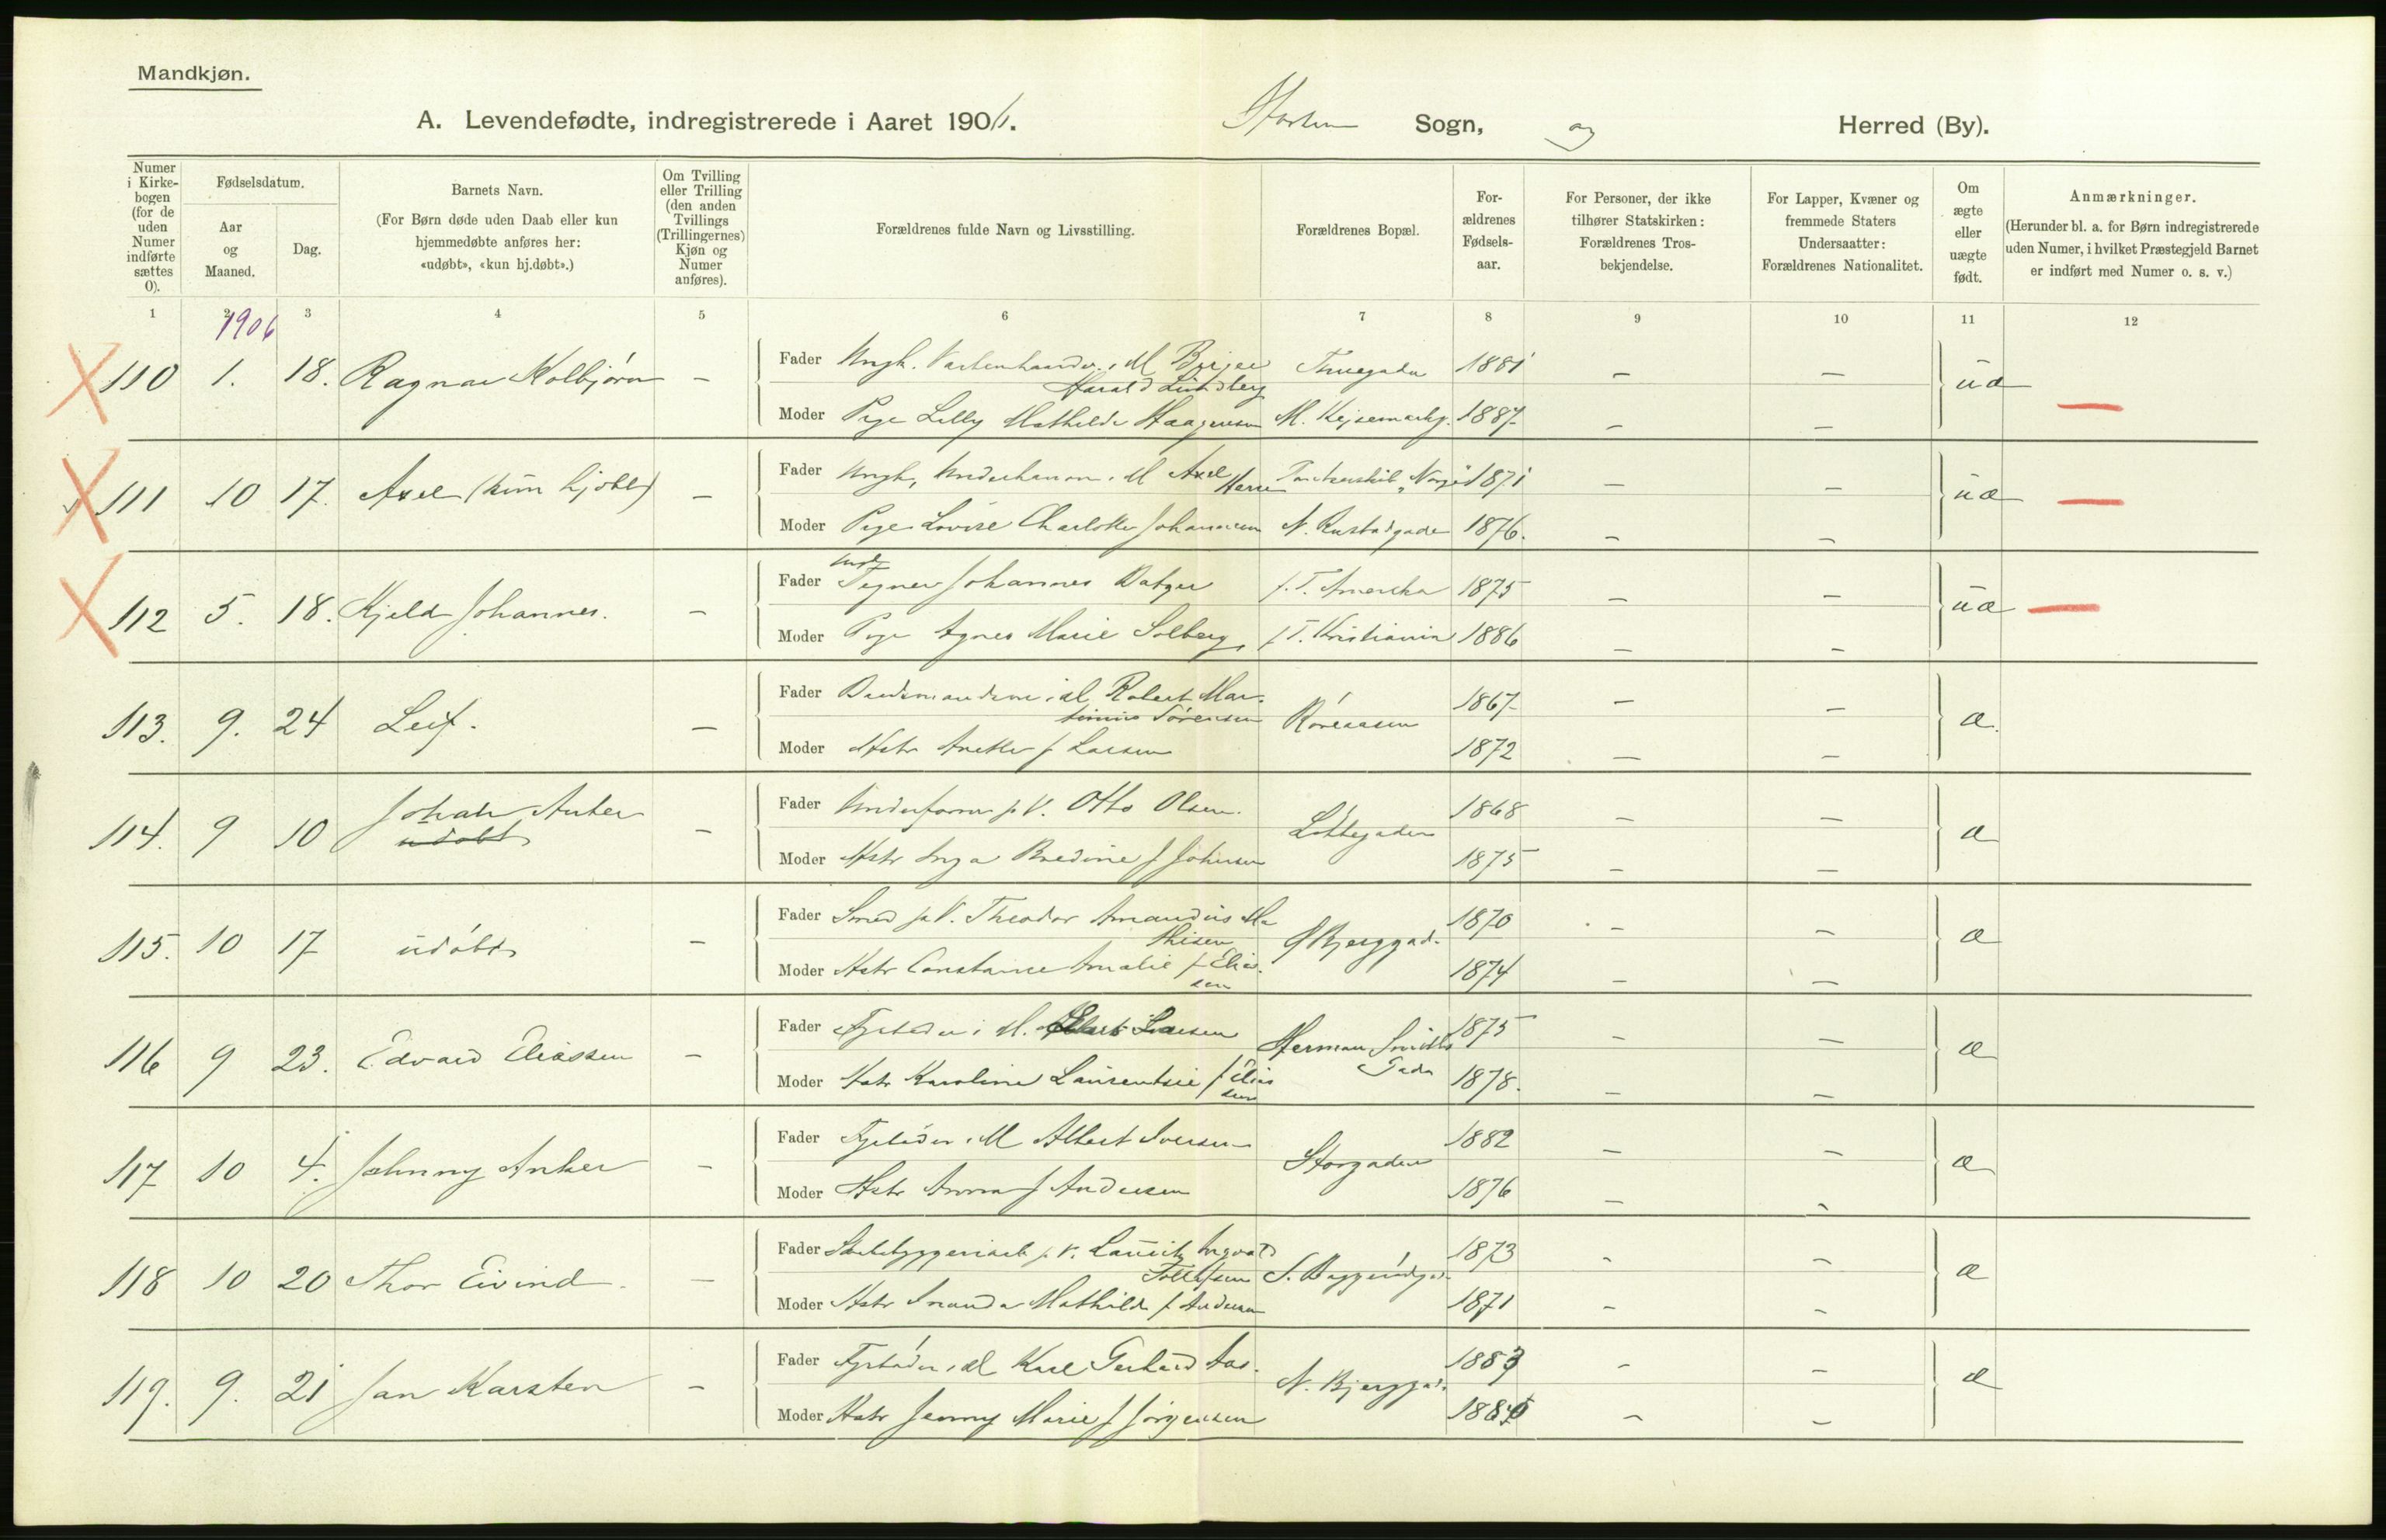 Mandkjøn.
A. Levendefødte, indregistrerede i Aaret 1906. Horten Sogn, og Herred (By).
Numer i Kirkebogen (for de uden Numer indførte sættes 0).
Fødselsdatum.
Aar og Maaned.
Dag.
Barnets Navn.
(For Børn døde uden Daab eller kun hjemmedøbte anføres her: «udøbt», «kun hj.døbt».)
Om Tvilling eller Trilling (den anden Tvillings (Trillingernes) Kjøn og Numer anføres).
Forældrenes fulde Navn og Livsstilling.
Forældrenes Bopæl.
Forældrenes Fødselsaar.
For Personer, der ikke tilhører Statskirken: Forældrenes Trosbekjendelse.
For Lapper, Kvæner og fremmede Staters Undersaatter: Forældrenes Nationalitet.
Om ægte eller uægte født.
Anmærkninger.
(Herunder bl. a. for Børn indregistrerede uden Numer, i hvilket Præstegjeld Barnet er indført med Numer o. s. v.)
1 2 3 4 5 6 7 8 9 10 11 12
1906
110 1. 18. Ragnar Kolbjørn - Fader Ungk. i M Birger Harald Lundberg 1881 - - uæ
Moder Pige Lilly Mathilde Haagensen M. Kejsemarkg. 1887 - -
111 10 17. Axel (kun hjdbt) - Fader Ungk. i M Axel "Norge" 1871 - - uæ
Moder Pige Lovise Charlotte Johannesen N. Rustadgade 1876. - -
112 5. 18. Kjeld Johannes. - Fader Tegner Johannes f. T. Amerika 1875 - - uæ
Moder Pige Agnes Marie Solberg, f T. Kristiania 1886 - -
113. 9. 24 Leif. - Fader i M Robert Martinius Sørensen Røreaasen 1867 - - æ.
Moder Hstr Anette f Larsen 1872 - -
114. 9 10 Johan Anker udøbt - Fader p V. Otto Olsen. Løkkegaden 1868 - - æ
Moder Hstr Inga Bredine f Johnsen 1875 - -
115. 10 17 udøbt - Fader Smed p V. Theodor Amandus Mathisen Bjerggad. 1870 - - æ
Moder Hstr Constance Amalie f Eliassen 1874 - -
116 9 23. Edvard Eliassen - Fader Fyrbøder i M. Larsen Herman Smiths Gade 1875 - - æ
Moder Hstr Karoline Laurentsie f Eliassen 1878. - -
117 10 4. Johnny Anker - Fader Fyrbøder i M Albert Iversen Storgaden 1882 - - æ
Moder Hstr Anna f Andersen 1876 - -
118 10 20 Thor Eivind. - Fader Skibsbyggeriarb p. V. Lauritz Ingvald Tollefsen 1873 - - æ
Moder Hstr Mathilde f Andersen 1871 - -
119. 9. 21 Jan Karsten - Fader Fyrbøder i M Karl Gerhard Aas. N. Bjerggad. 1883 - - æ
Moder Hstr Jenny Marie f Jørgensen - -